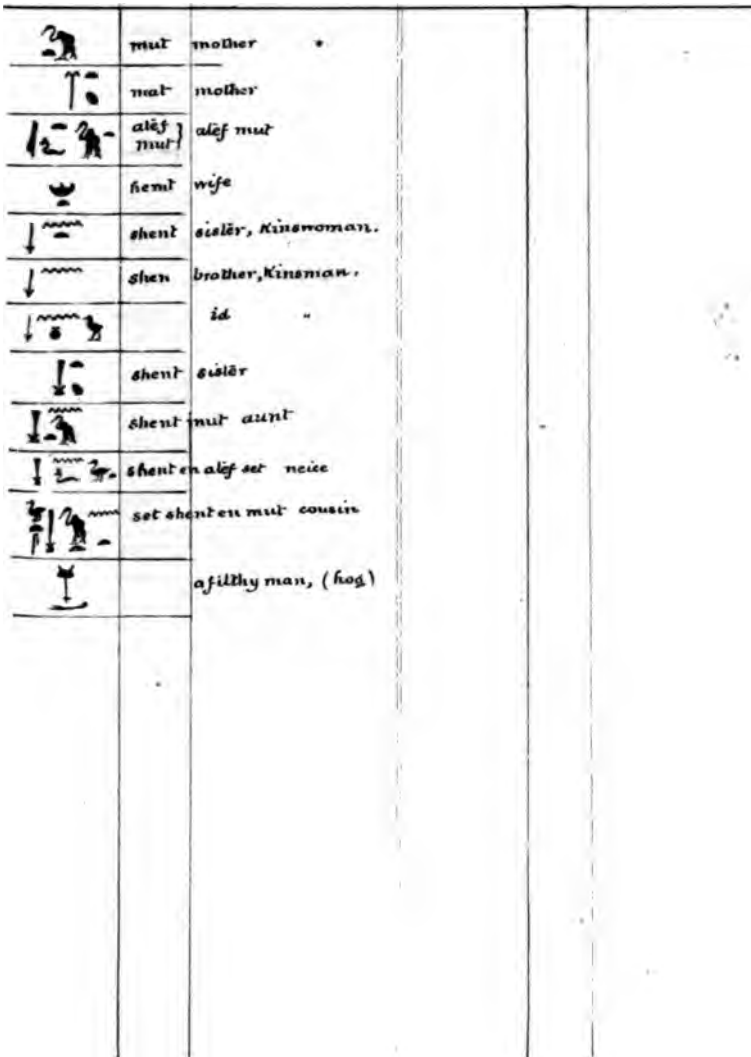 mut mother
mat mother
atef mut } atef mut
hemt wife
shent sister, Kinswoman.
shen brother, Kinsman.
id "
shent sister
shent mut aunt
shent en atef set neice
set shent en mut cousin
a filthy man, (hog)